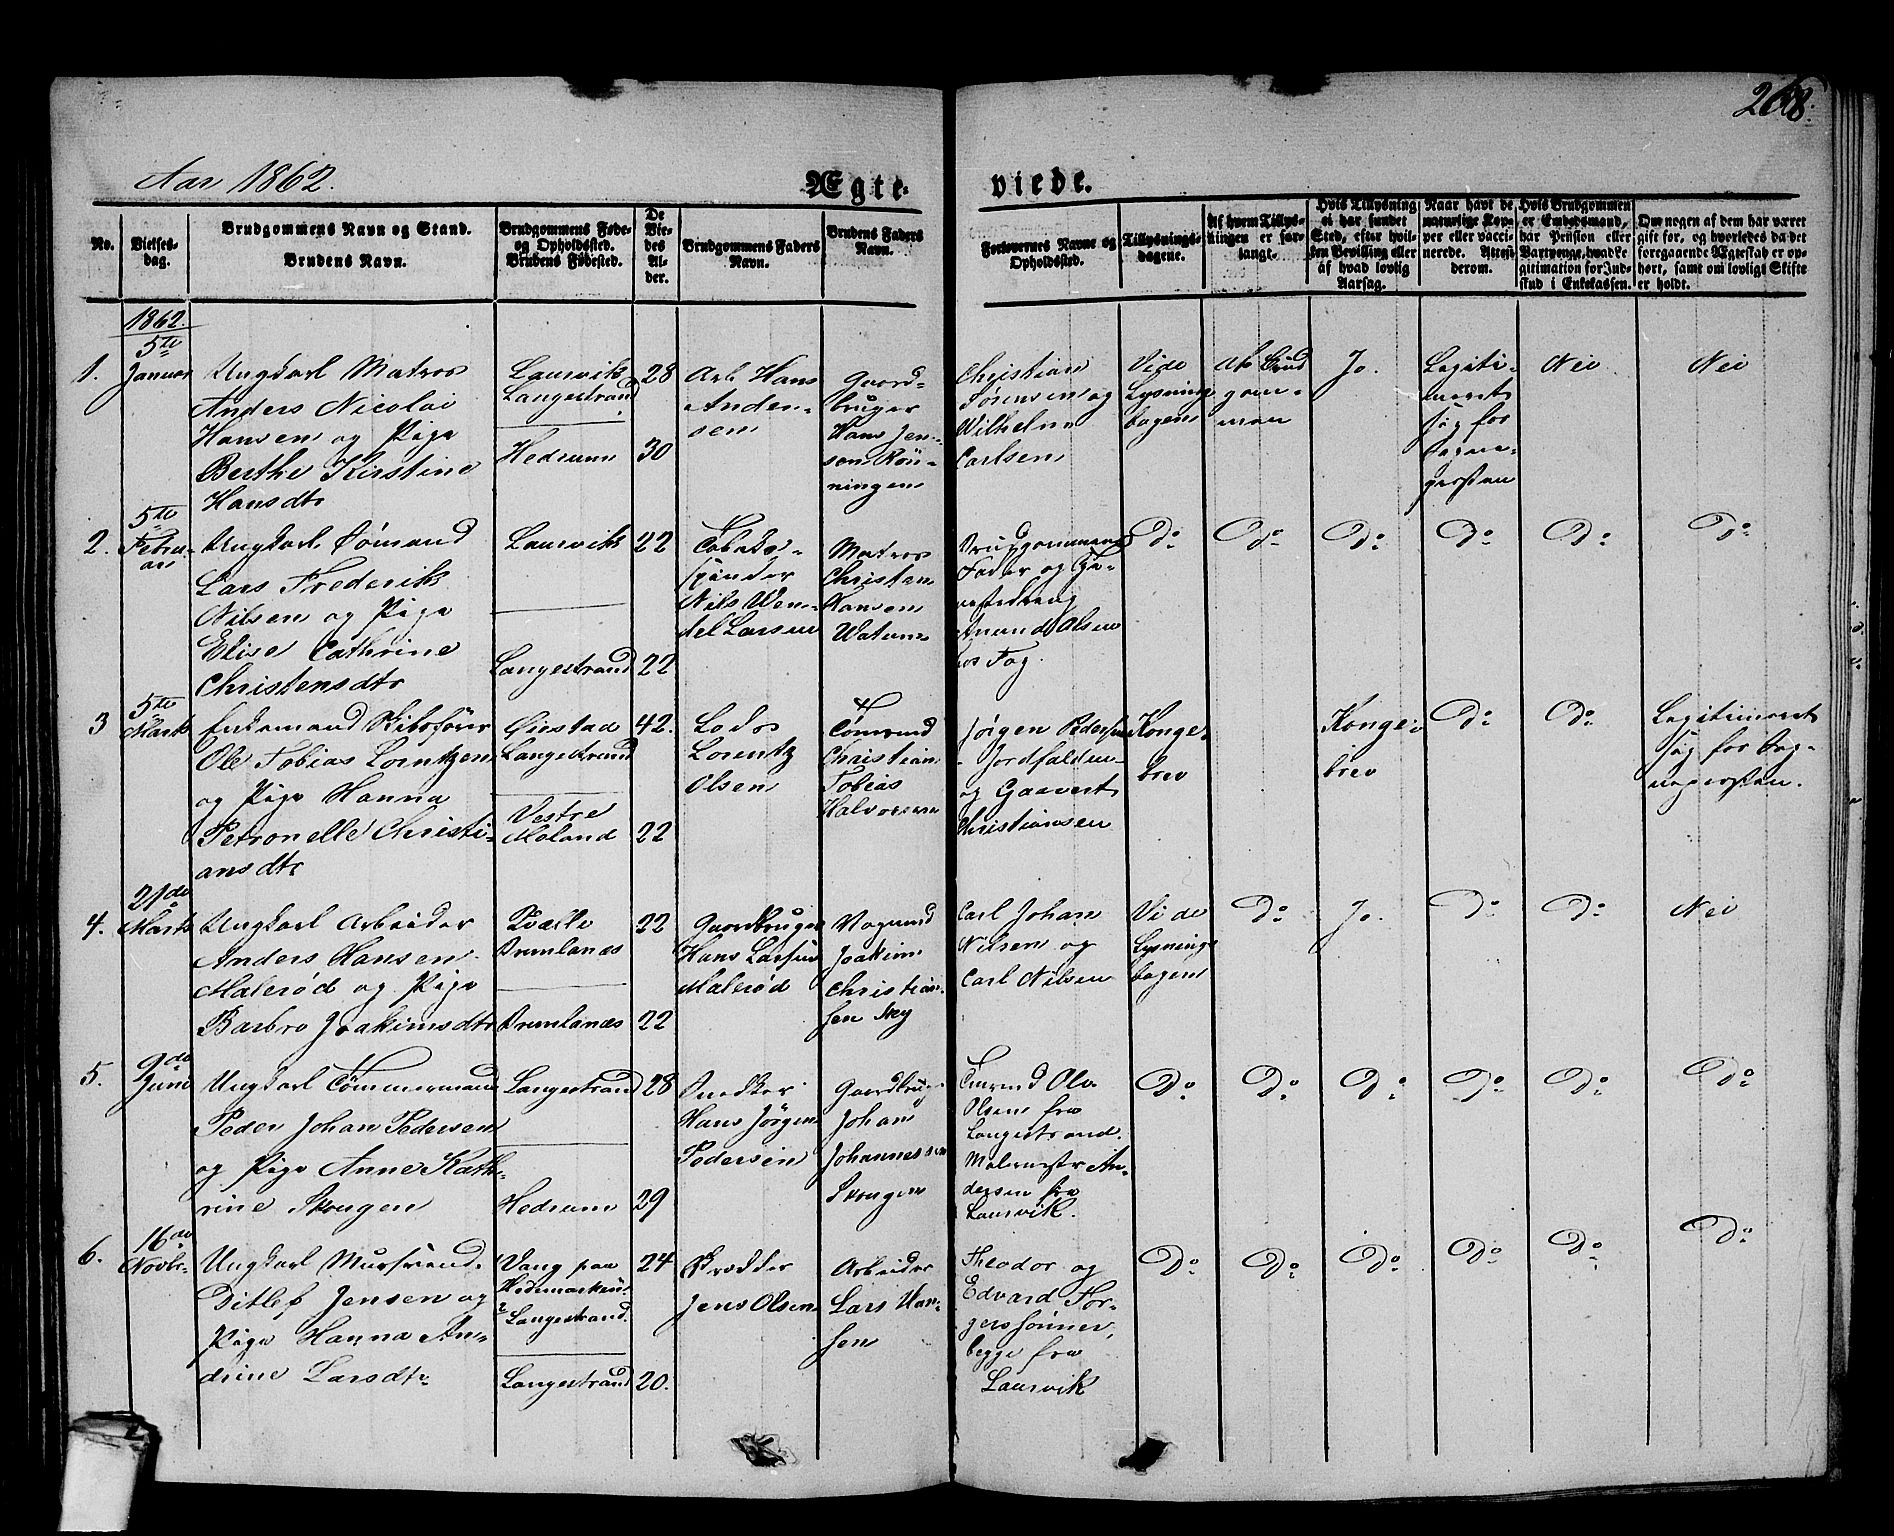 268.
Aar 1862.
Ægte-
viede.
No.
Vielses-
dag.
Brudgommens Navn og Stand.
Brudens Navn.
Brudgommens Føde-
og Opholdssted.
Brudens Fødested.
De
Vie-
des
Al-
der.
Brudgommens Faders
Navn.
Brudens Faders
Navn.
Forlovernes Navne og
Opholdssted.
Tillysnings-
dagene.
Af hvem Tillys-
ningen er for-
langt.
Hvis Tillysning
ei har fundet
Sted, efter hvil-
ken Bevilling eller
af hvad lovlig
Aarsag.
Naar havt de
naturlige Kop-
per eller vacci-
nerede. Attest
derom.
Hvis Brudgommen
er Embedsmand,
har Pension eller
Vartpenge, hvad Le-
gitimation for Ind-
skud i Enkekassen.
Om nogen af dem har været
gift før, og hvorledes da det
foregaaende Ægteskab er op-
hørt, samt om lovligt Skifte
er holdt.
1862.
1.
5te
Januar
Ungkarl Matros
Anders Nicolai
Hansen og Pige
Berthe Kirstine
Hansdtr
Laurvik
Langestrand
Hedrum
28
30
Arb. Hans
Ander-
sen
Gaard-
bruger
Hans Jen-
sen Røn-
ningen
Christian
Sørensen og
Wilhelm
Carlsen
Vide
Lysnings
bogen
Af Brud
gom-
men
Jo.
Legiti-
meret
sig for
Sogne-
præsten
Nei
Nei
2.
5te
Febru-
ar
Ungkarl Sømand
Lars Frederik
Nilsen og Pige
Elise Cathrine
Christensdtr
Laurvik
Langestrand
22
22
Tobaks-
spinder
Nils Wen-
del Larsen
Matros
Christen
Hansen
Watum
Brudgommens
Fader og
Amund Olsen
hos Fog.
Do
Do
Do
Do
Do
Do
3
5te
Marts
Enkemand Skibsfører
Ole Tobias Lorentzen
og Pige Hanna
Petronelle Christi-
ansdtr
Øiestad
Langestrand
Vestre
Moland
42.
22
Lods
Lorentz
Olsen
Tømrmd
Christian
Tobias
Halvorsen
Jørgen Pedersen
Jordfalden
og Gaavert
Christiansen
Konge-
brev
Konge-
brev
Do
Do
Legitimeret
sig for Sog-
nepræsten.
4.
21de
Marts
Ungkarl Arbeider
Anders Hansen
Malerød og Pige
Barbro Joakimsdtr
Kvælle
Brunlanæs
Brunlanæs
22
22
Gaardbruger
Hans Larsen
Malerød
Vognmd
Joakim
Christian-
sen Sky
Carl Johan
Nilsen og
Carl Nilsen
Vide
Lysnings
bogen
Do
Jo.
Do
Do
Nei
5.
9de
Juni
Ungkarl Tømmermand
Peder Johan Pedersen
og Pige Anne Kath-
rine Skougen
Langestrand
Hedrum
28
29
Snedker
Hans Jørgen
Pedersen
Gaardbrug.
Johan
Johannessen
Skougen
Tømrmd Ole
Olsen fra
Langestrand.
Malermstr An-
dersen fra
Laurvik.
Do
Do
Do
Do
Do
Do
6.
16de
Novbr.
Ungkarl Mursvend
Ditlef Jensen og
Pige Hanna An-
drine Larsdtr
Vang paa
Hedemarken
Langestrand.
Langestrand
24
20.
Skrædder
Jens Olsen
Arbeider
Lars Han-
sen
Theodor og
Edvard Tor-
gerssønner,
begge fra
Laurvik
Do
Do
Do
Do
Do
Do